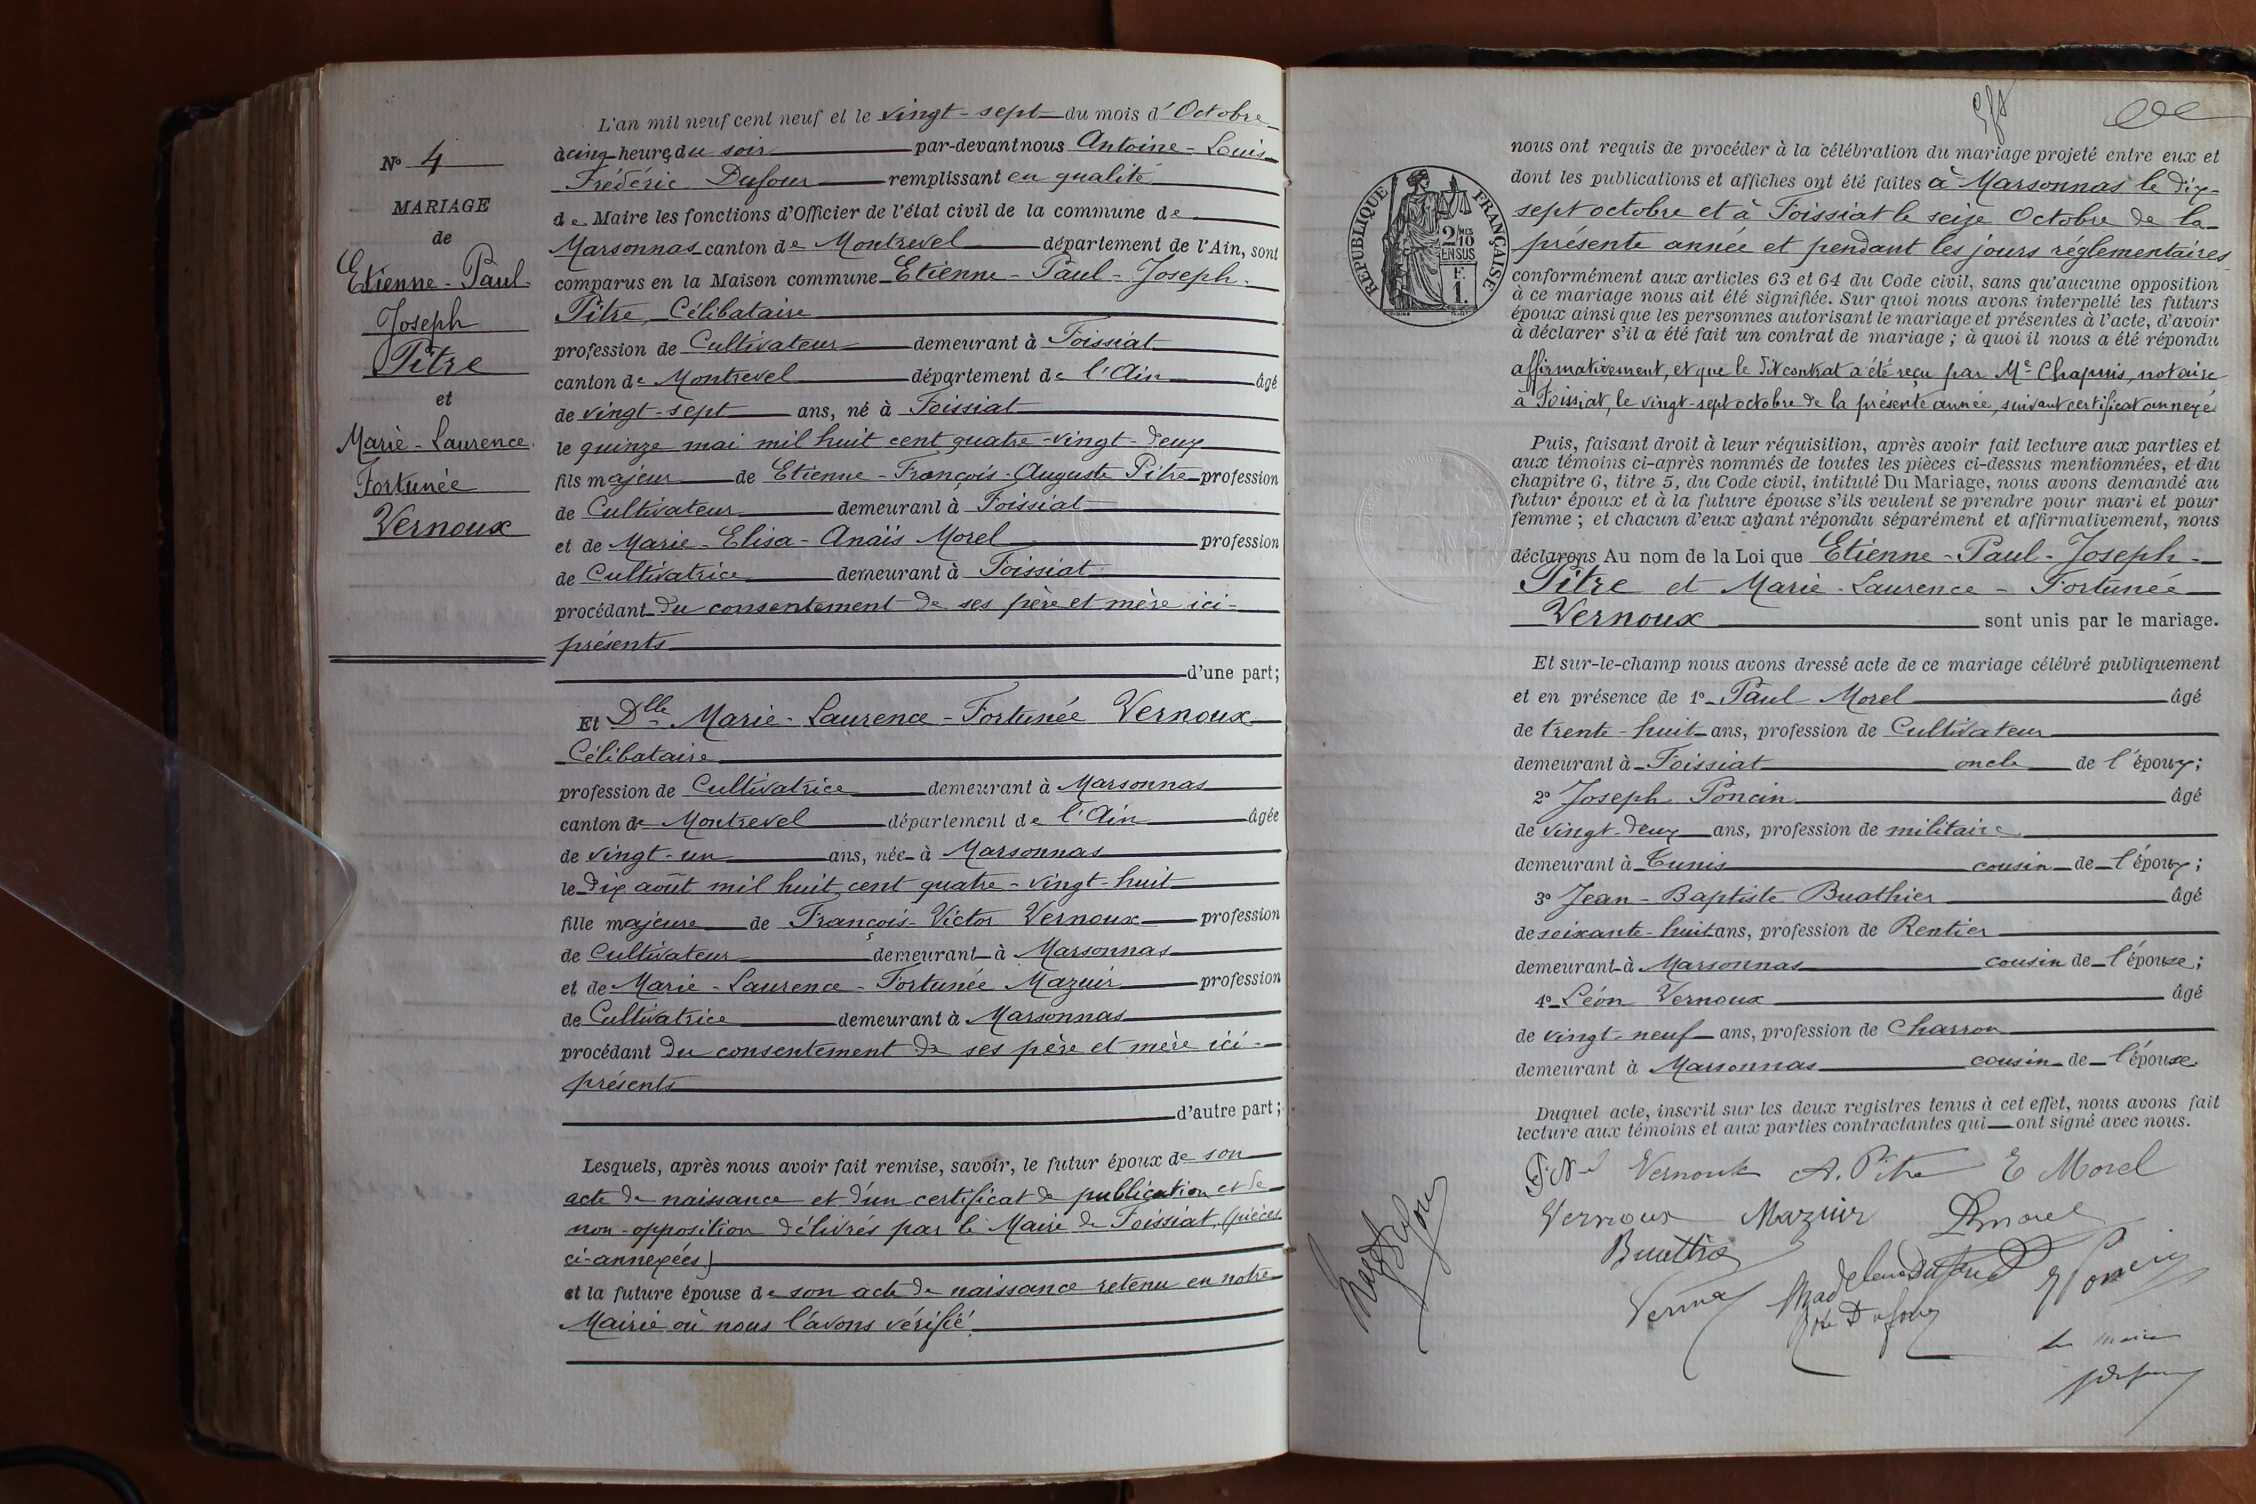 N° 4
MARIAGE
de
Etienne - Paul -
Joseph
Pitre
et
Marie - Laurence -
Fortunée
Vernoux
L'an mil neuf cent neuf et le vingt-sept du mois d'Octobre
à cinq heures du soir par-devant nous Antoine - Louis
Frédéric Dufour remplissant en qualité
de Maire les fonctions d'Officier de l'état civil de la commune de
Marsonnas canton de Montrevel département de l'Ain, sont
comparus en la Maison commune Etienne - Paul - Joseph -
Pitre, Célibataire
profession de Cultivateur demeurant à Foissiat
canton de Montrevel département de l'Ain âgé
de vingt-sept ans, né à Foissiat
le quinze mai mil huit cent quatre-vingt-deux
fils majeur de Etienne - François - Auguste Pitre profession
de Cultivateur demeurant à Foissiat
et de Marie - Elisa - Anaïs Morel profession
de Cultivatrice demeurant à Foissiat
procédant du consentement de ses père et mère ici-
présents
d'une part;
Et Dlle Marie - Laurence - Fortunée Vernoux
Célibataire
profession de Cultivatrice demeurant à Marsonnas
canton de Montrevel département de l'Ain âgée
de vingt-un ans, née à Marsonnas
le dix août mil huit cent quatre-vingt-huit
fille majeure de François - Victor Vernoux profession
de Cultivateur demeurant à Marsonnas
et de Marie - Laurence - Fortunée Mazuir profession
de Cultivatrice demeurant à Marsonnas
procédant du consentement de ses père et mère ici-
présents
d'autre part;
Lesquels, après nous avoir fait remise, savoir, le futur époux de son
acte de naissance et d'un certificat de publication et de
non-opposition délivrés par le Maire de Foissiat, (pièces
ci-annexées)
et la future épouse de son acte de naissance retenu en notre
Mairie où nous l'avons vérifié.
RÉPUBLIQUE FRANÇAISE
2/10
EN SUS
F.
1.
nous ont requis de procéder à la célébration du mariage projeté entre eux et
dont les publications et affiches ont été faites à Marsonnas le dix-
sept octobre et à Foissiat le seize Octobre de la
présente année et pendant les jours réglementaires
conformément aux articles 63 et 64 du Code civil, sans qu'aucune opposition
à ce mariage nous ait été signifiée. Sur quoi nous avons interpellé les futurs
époux ainsi que les personnes autorisant le mariage et présentes à l'acte, d'avoir
à déclarer s'il a été fait un contrat de mariage; à quoi il nous a été répondu
affirmativement, et que le dit contrat a été reçu par Me Chapuis, notaire
à Foissiat, le vingt-sept octobre de la présente année, suivant certificat annexé
Puis, faisant droit à leur réquisition, après avoir fait lecture aux parties et
aux témoins ci-après nommés de toutes les pièces ci-dessus mentionnées, et du
chapitre 6, titre 5, du Code civil, intitulé Du Mariage, nous avons demandé au
futur époux et à la future épouse s'ils veulent se prendre pour mari et pour
femme; et chacun d'eux ayant répondu séparément et affirmativement, nous
déclarons Au nom de la Loi que Etienne - Paul - Joseph -
Pitre et Marie - Laurence - Fortunée
Vernoux sont unis par le mariage.
Et sur-le-champ nous avons dressé acte de ce mariage célébré publiquement
et en présence de 1° Paul Morel âgé
de trente-huit ans, profession de Cultivateur
demeurant à Foissiat oncle de l'époux;
2° Joseph Poncin âgé
de vingt-deux ans, profession de militaire
demeurant à Tunis cousin de l'époux;
3° Jean - Baptiste Buathier âgé
de soixante-huit ans, profession de Rentier
demeurant à Marsonnas cousin de l'épouse;
4° Léon Vernoux âgé
de vingt-neuf ans, profession de Charron
demeurant à Marsonnas cousin de l'épouse.
Duquel acte, inscrit sur les deux registres tenus à cet effet, nous avons fait
lecture aux témoins et aux parties contractantes qui ont signé avec nous.
Vernoux A. Pitre E Morel
Vernoux Mazuir Pmorel
Madeleine Dufour J Poncin
Dufour
Le maire